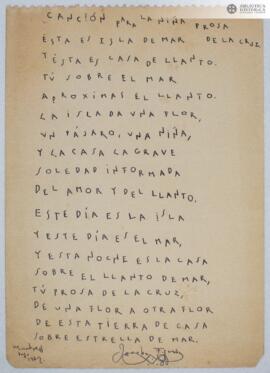 BIBLIOTECA
HISTÓRICA
CANCIÓN PARA LA NIÑA PROSA
DE LA CRUZ
ÉSTA ES ISLA DE MAR.
Y ÉSTA ES CASA DE LLANTO.
TÚ SOBRE EL MAR
APROXIMAS EL LLANTO.
LA ISLA DA UNA FLOR,
UN PÁJARO, UNA NIÑA,
Y LA CASA LA GRAVE
SOLEDAD INFORMADA
DEL AMOR Y DEL LLANTO.
ESTE DÍA ES LA ISLA
Y ESTE DÍA ES EL MAR,
Y ESTA NOCHE ES LA CASA
SOBRE EL LLANTO DE MAR,
TÚ PROSA DE LA CRUZ,
DE UNA FLOR A OTRA FLOR
DE ESTA TIERRA DE CASA
SOBRE ESTRELLA DE MAR.